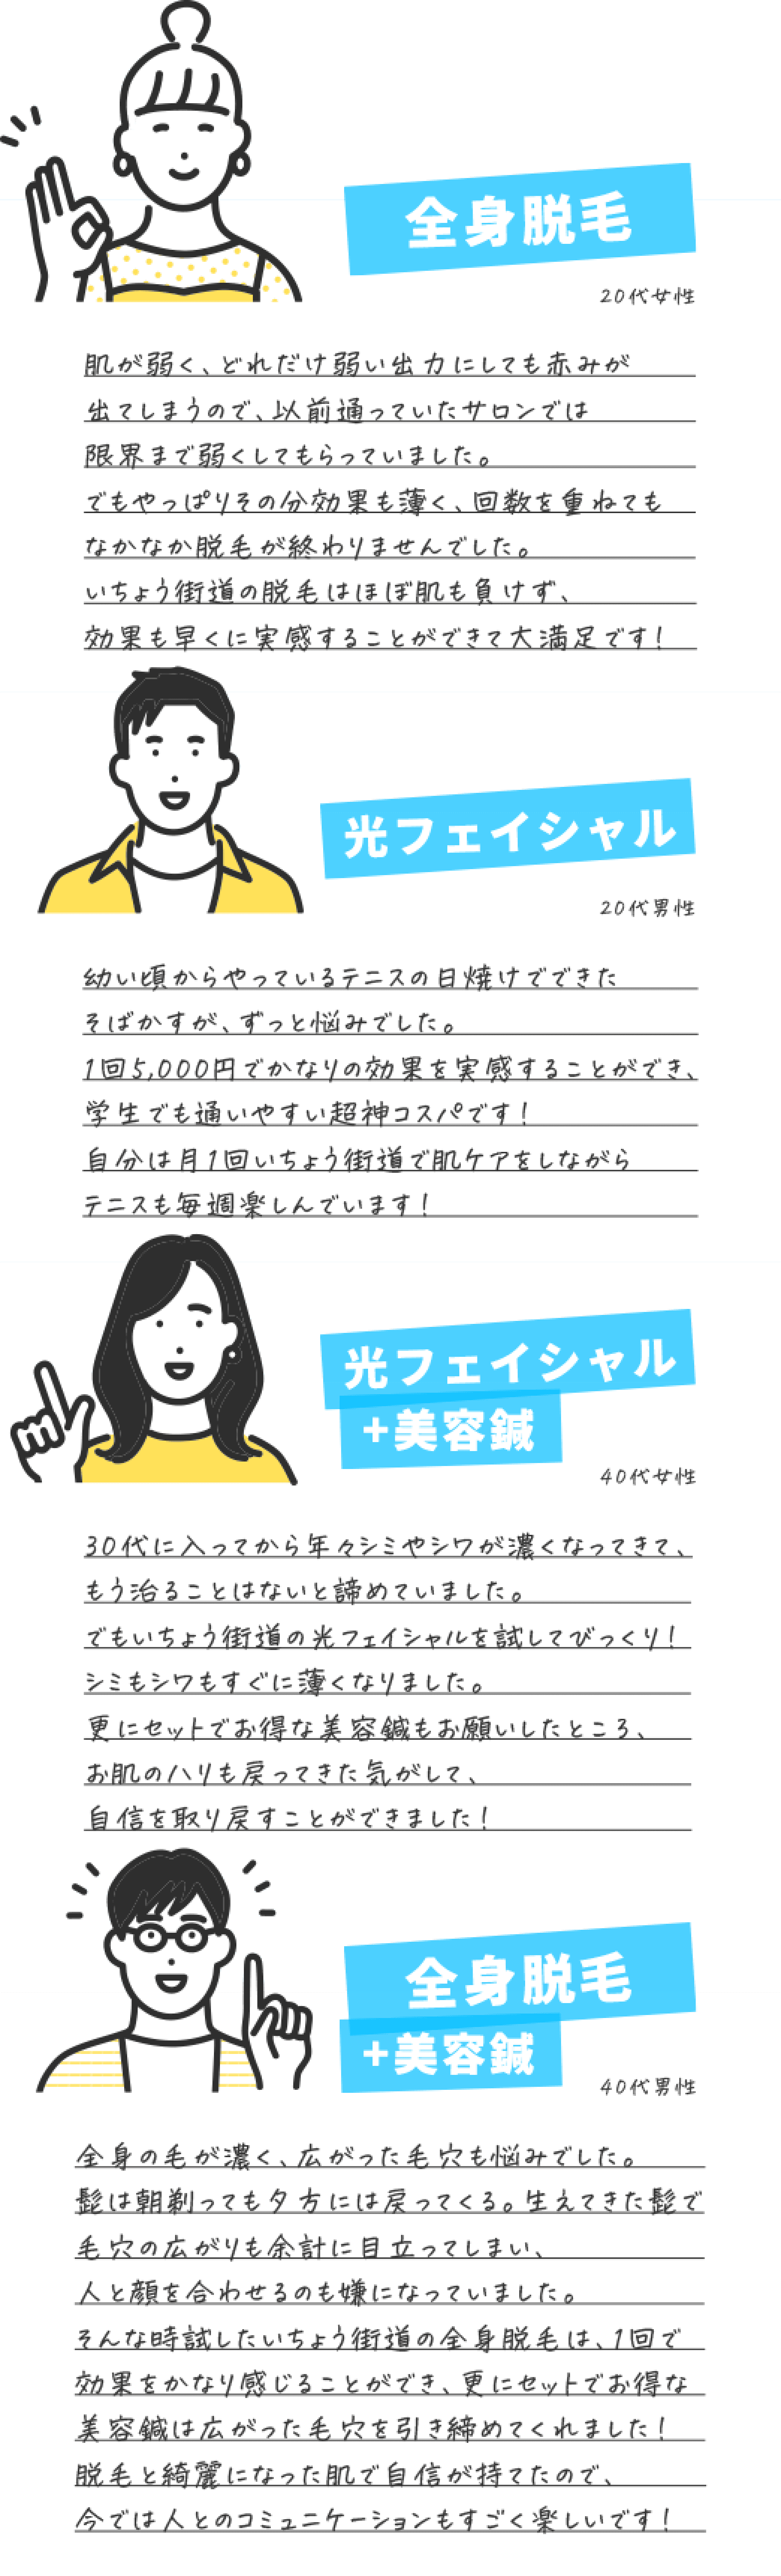 全身脱毛
20代女性
肌が弱く、どれだけ弱い出力にしても赤みが
出てしまうので、以前通っていたサロンでは
限界まで弱くしてもらっていました。
でもやっぱりその分効果も薄く、回数を重ねても
なかなか脱毛が終わりませんでした。
いちょう街道の脱毛はほぼ肌も負けず、
効果も早くに実感することができて大満足です!
光フェイシャル
20代男性
幼い頃からやっているテニスの日焼けでできた
そばかすが、ずっと悩みでした。
1回5,000円でかなりの効果を実感することができ、
学生でも通いやすい超神コスパです!
自分は月1回いちょう街道で肌ケアをしながら
テニスも毎週楽しんでいます!
光フェイシャル
+美容鍼
40代女性
30代に入ってから年々シミやシワが濃くなってきて、
もう治ることはないと諦めていました。
でもいちょう街道の光フェイシャルを試してびっくり!
シミもシワもすぐに薄くなりました。
更にセットでお得な美容鍼もお願いしたところ、
お肌のハリも戻ってきた気がして、
自信を取り戻すことができました!
全身脱毛
+美容鍼
40代男性
全身の毛が濃く、広がった毛穴も悩みでした。
髭は朝剃っても夕方には戻ってくる。生えてきた髭で
毛穴の広がりも余計に目立ってしまい、
人と顔を合わせるのも嫌になっていました。
そんな時試したいちょう街道の全身脱毛は、1回で
効果をかなり感じることができ、更にセットでお得な
美容鍼は広がった毛穴を引き締めてくれました!
脱毛と綺麗になった肌で自信が持てたので、
今では人とのコミュニケーションもすごく楽しいです!